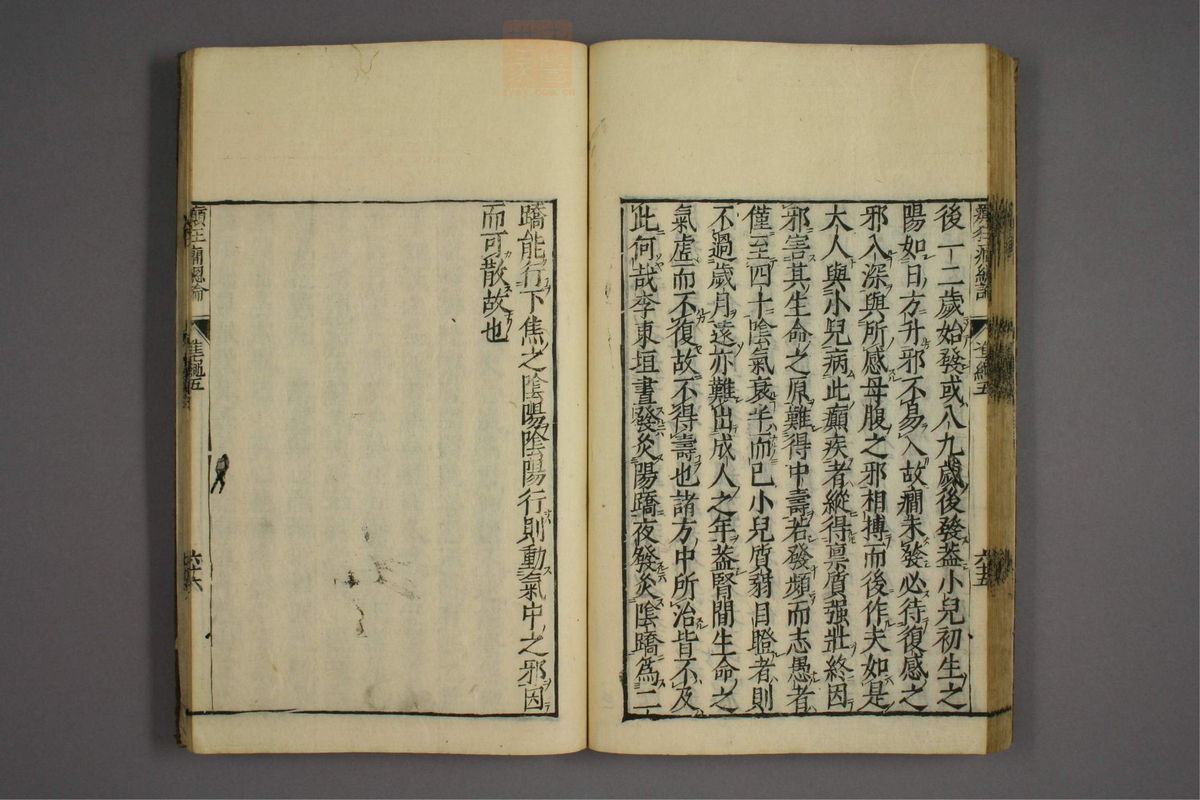 癲狂癇總論 準繩五 六十五
後一二歲始發或八九歲後發盖小兒初生之
陽如日方升邪不易入故癇未發必待復感之
邪入深與所感母腹之邪相搏而後作夫如是
大人與小兒病此癲疾者縱得禀質强壯終因
邪害其生命之原難得中壽若發頻而志愚者
僅至四十陰氣衰半而已小兒質弱目瞪者則
不過歲月遠亦難出成人之年盖腎間生命之
氣虛而不復故不得壽也諸方中所治皆不及
此何哉李東垣晝發灸陽蹻夜發灸陰蹻爲二
蹻能行下焦之陰陽陰陽行則動氣中之邪因
而可散故也
癲狂癇總論 準繩五 六十六